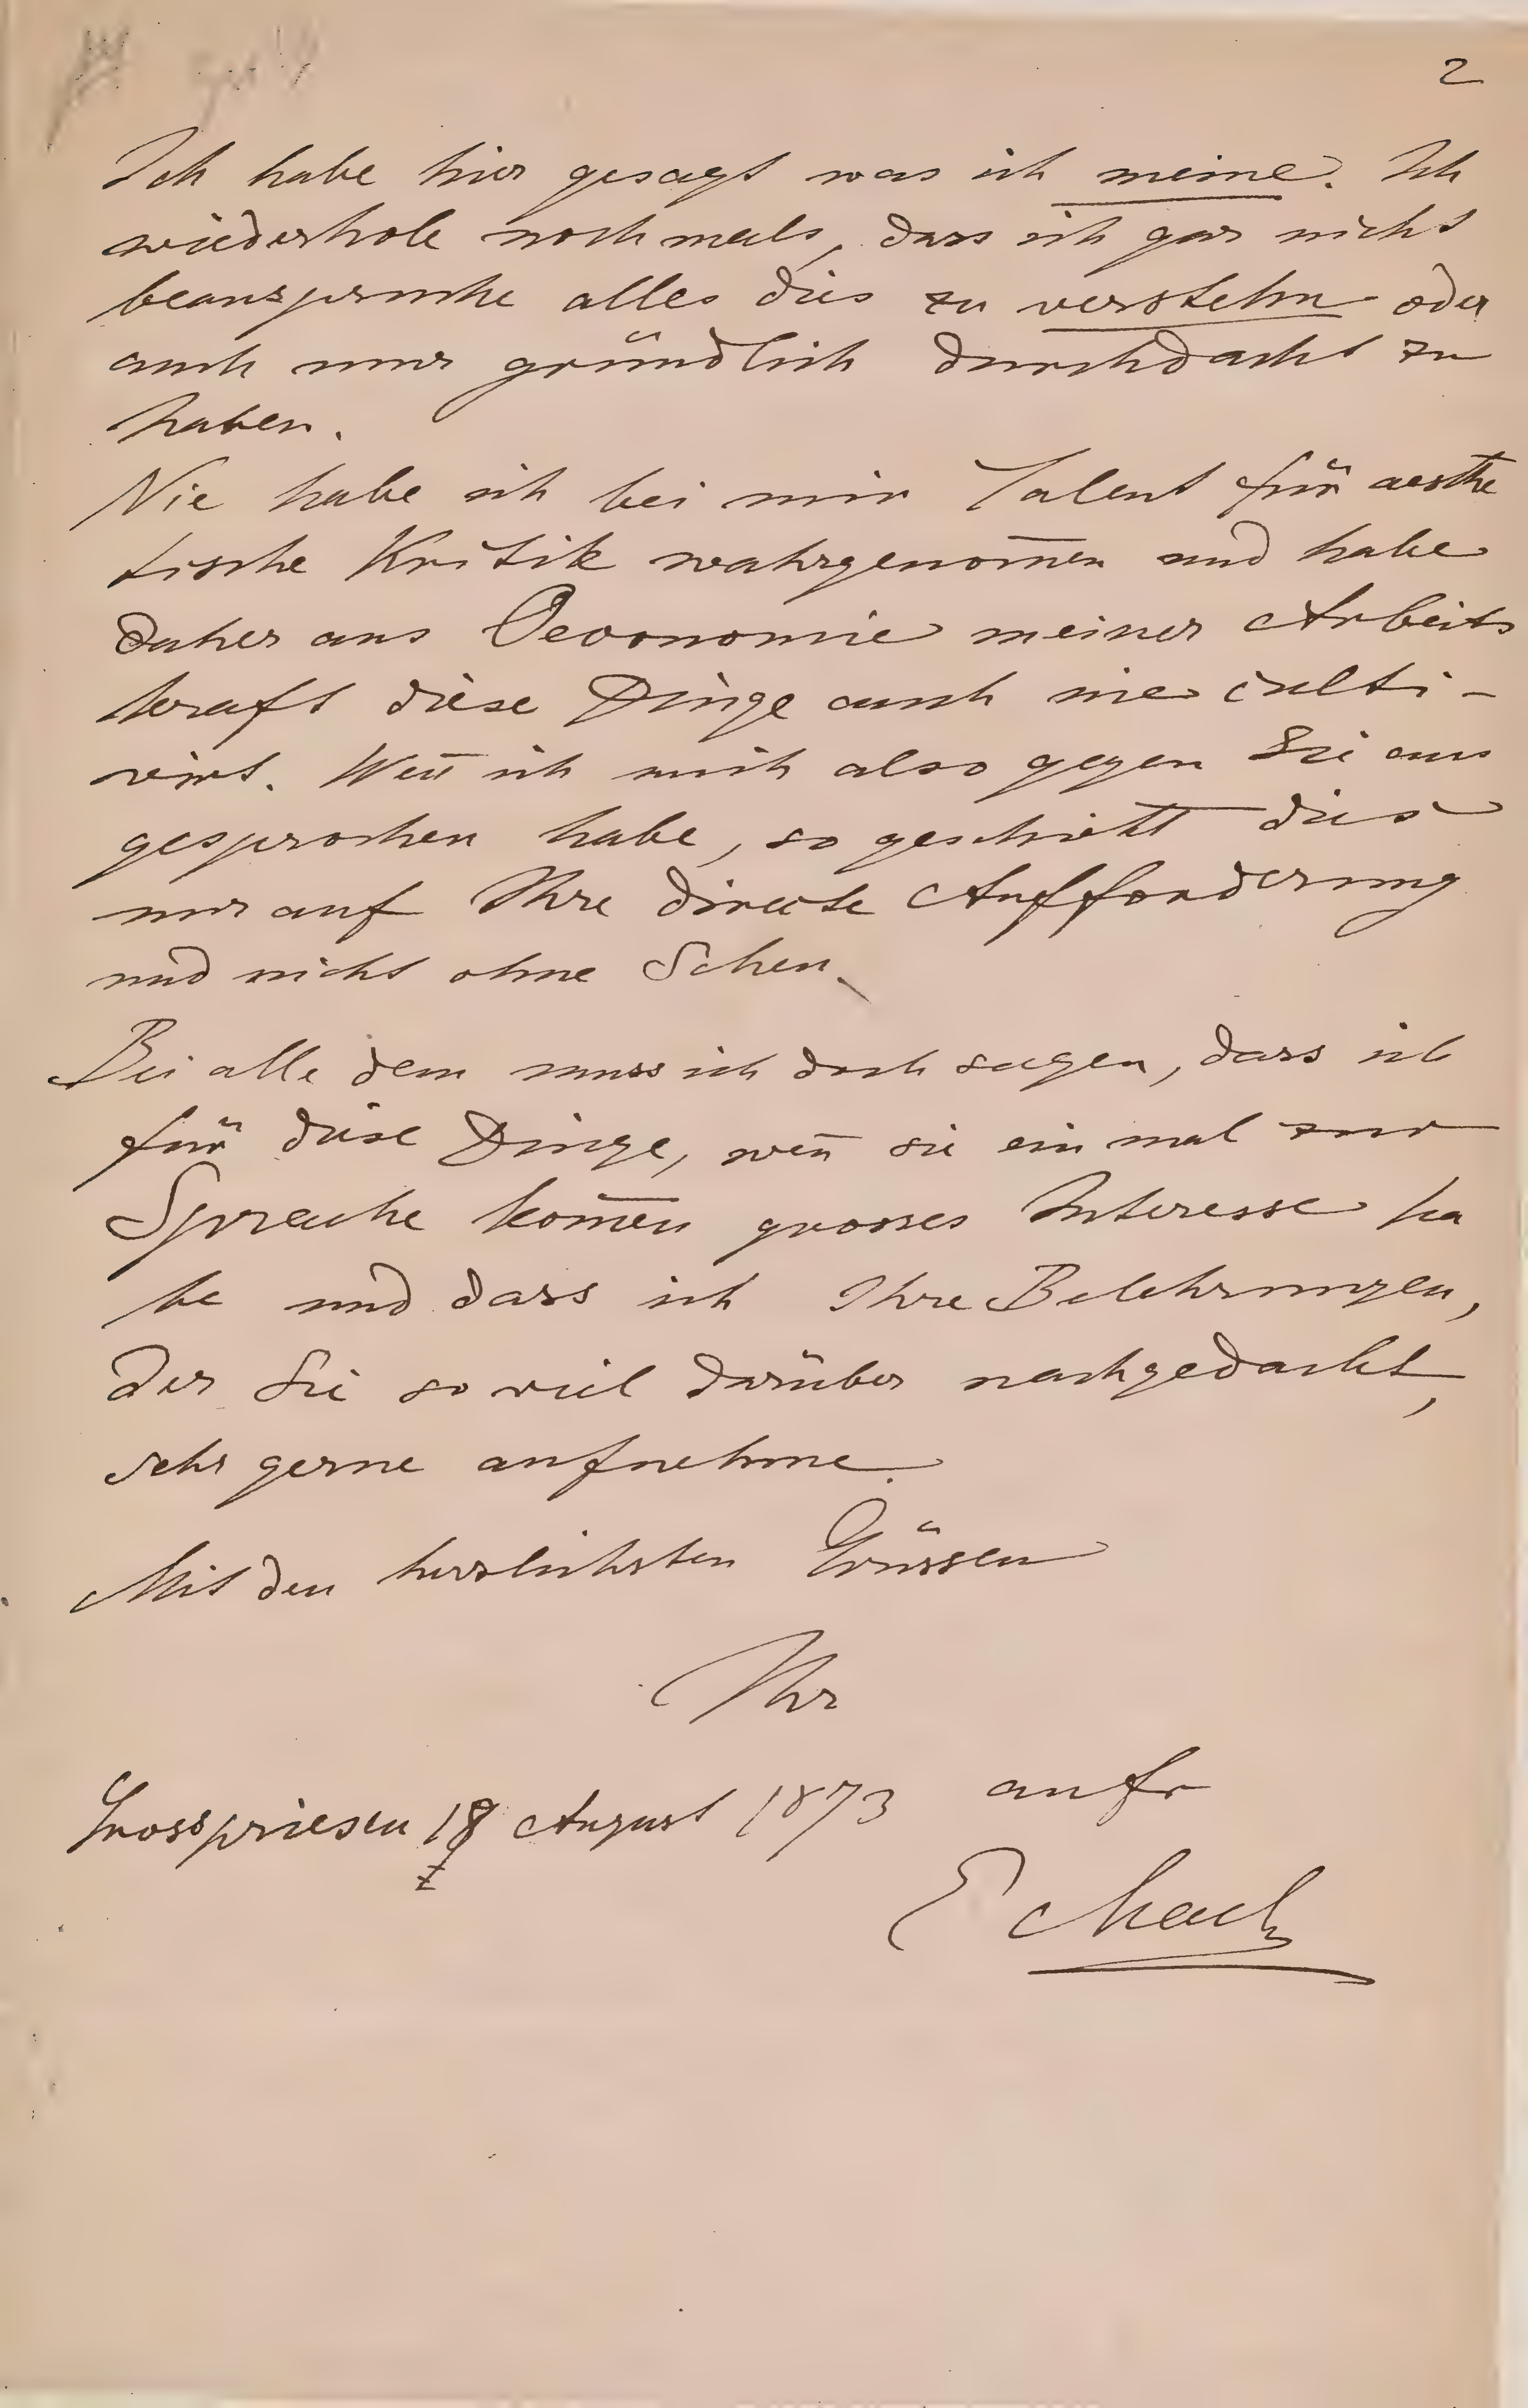 2
Ich habe hier gesagt was ich meine. Ich
wiederhole nochmals, dass ich gar nicht
beanspruche alles dies zu verstehn oder
auch nur gründlich durchdacht zu
haben.
Nie habe ich bei mir Talent für aesthe
tische Kritik wahrgenom̅en und habe
daher aus Oeconomie meiner Arbeits
kraft diese Dinge auch nie culti-
virt. Wen̅ ich mich also gegen Sie aus
gesprochen habe, so geschieht dies
nur auf Ihre directe Aufforderung
und nicht ohne Scheu.
Bei alle dem muss ich doch sagen, dass ich
für diese Dinge, wen̅ sie ein mal zur
Sprache kom̅en grosses Interesse ha
be und dass ich Ihre Belehrungen,
der Sie so viel darüber nachgedacht,
sehr gerne aufnehme.
Mit den herzlichsten Grüssen
Ihr
aufr
Grosspriesen 18 August 1873
E Mach